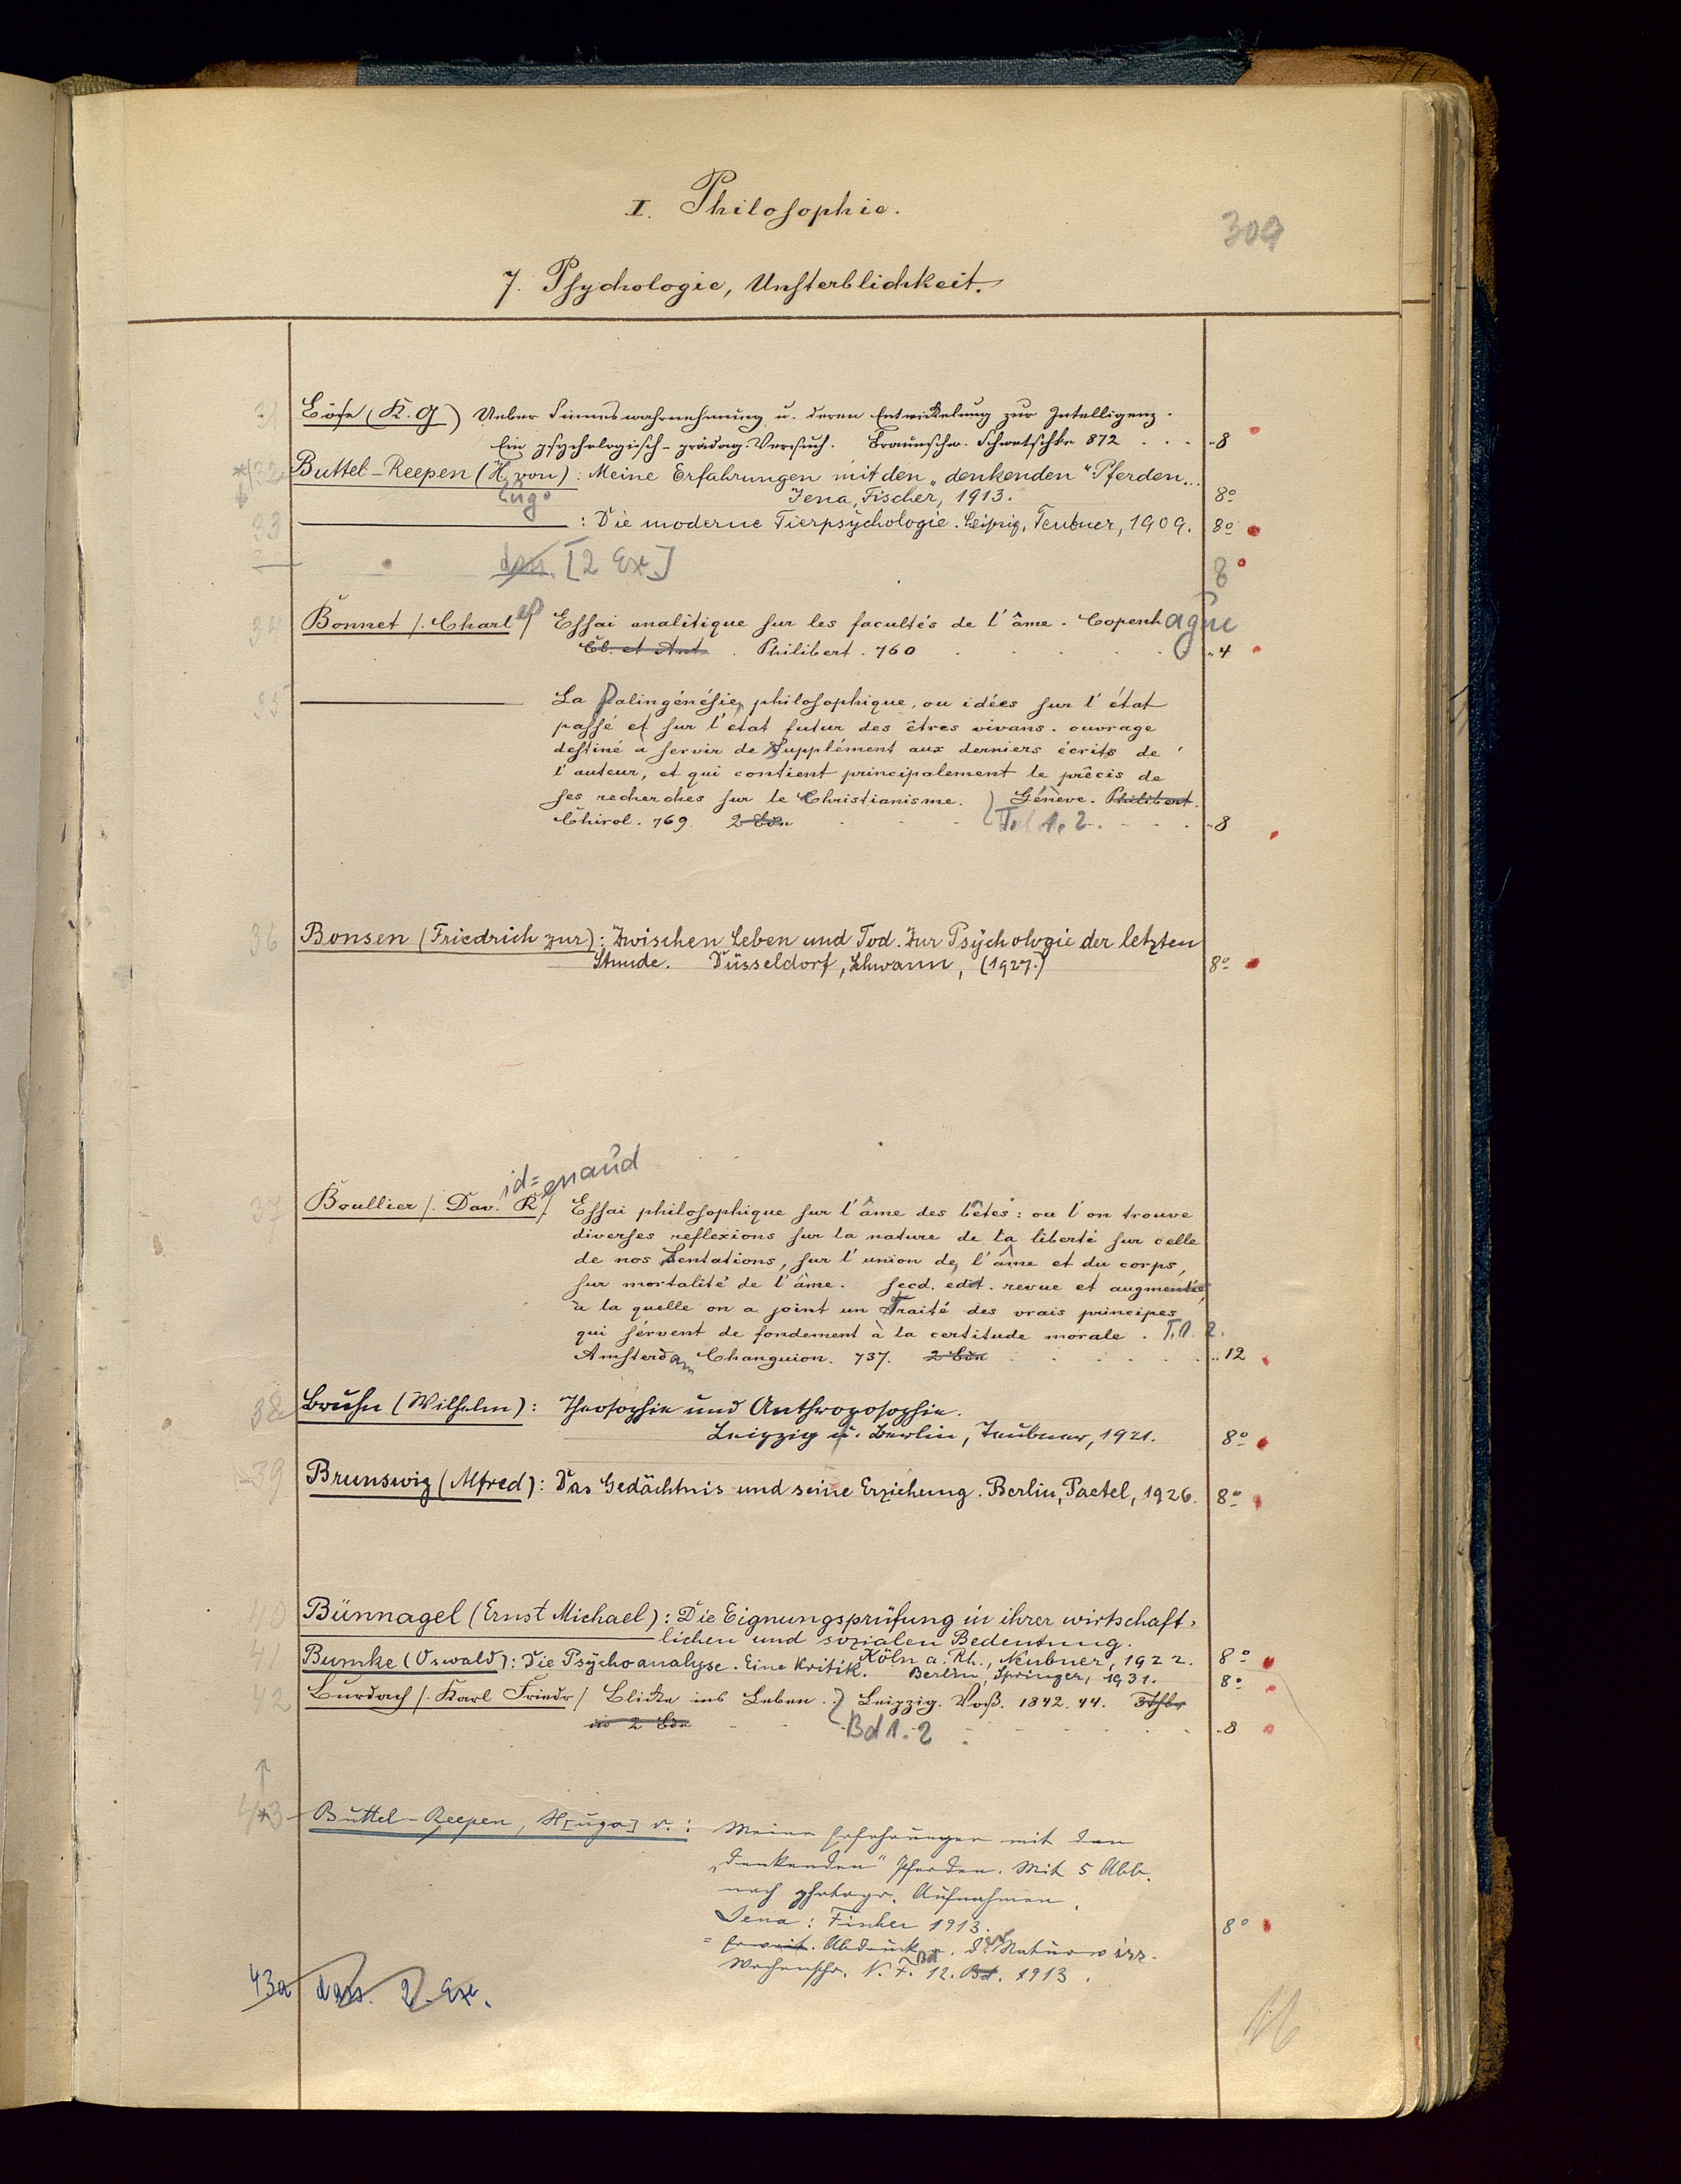 I. Philosophie.
309
7. Psychologie, Unsterblichkeit.
31 Böse (K. G) Ueber Sinneswahrnehmung u. deren Entwickelung zur Intelligenz.
Ein psychologisch-pädag. Versuch. Braunschw. Schwetschke 872 . . . „8
*132 Buttel-Reepen (H. von): Meine Erfahrungen mit den „denkenden“ Pferden...
ugo Jena, Fischer, 1913. 8°
33 : Die moderne Tierpsychologie. Leipzig, Teubner, 1909. 8°
das. [2 Ex.] 8
34 Bonnet /. Charles/ Essai analitique sur les facultés de l'âme. Copenhague
Cl. et Ant. . Philibert. 760 . . . . „4
35 La Palingénésie, philosophique, ou idées sur l'état
passé et sur l'état futur des êtres vivans. ouvrage
destiné à servir de Supplément aux derniers écrits de
l'auteur, et qui contient principalement le précis de
ses recherches sur le Christianisme. Génève. Philibert.
Chirol. 769. 2 Bdn T. 1. 2 . . . „8
36 Bonsen (Friedrich zur): Zwischen Leben und Tod. Zur Psychologie der letzten
Stunde. Düsseldorf, Schwann, (1927.) 8°
id= enaud
37 Boullier /. Dav. R/. Essai philosophique sur l'âme des bêtes: ou l'on trouve
diverses reflexions sur la nature de la liberté sur celle
de nos Sentations, sur l'union de, l'âme et du corps,
sur mortalité de l'âme. secd. edit. revue et augmentée,
à la quelle on a joint un Traité des vrais principes
qui sérvent de fondement à la certitude morale. T.1. 2.
Amsterdam Changuion. 737. 2 Bdn . . . . „12
38 Bruhn (Wilhelm): Theosophie und Anthroposophie.
Leipzig u. Berlin, Teubner, 1921. 8°
39 Brunswig (Alfred): Das Gedächtnis und seine Erziehung. Berlin, Paetel, 1926. 8°
40 Bünnagel (Ernst Michael): Die Eignungsprüfung in ihrer wirtschaft-
lichen und sozialen Bedeutung.
Köln a. Rh., Neubner, 1922. 8°
41 Bumke (Oswald): Die Psychoanalyse. Eine Kritik. Berlin, Springer, 1931. 8°
42 Burdach /. Karl Friedr/ Blicke ins Leben. Leipzig. Voß. 1842. 44. 3Thle
in 2 Bdn Bd 1. 2 . . . „8
43 Buttel-Reepen, H[ugo] v.: Meine Erfahrungen mit den
„denkenden“ Pferden. Mit 5 Abb.
nach photogr. Aufnahmen.
Jena: Fischer 1913. 8°
= Erweit. Abdruck a. der Naturwiss.
Wochenschr. N. F. Bd 12. Bd. 1913.
43a dass. 2. Ex.